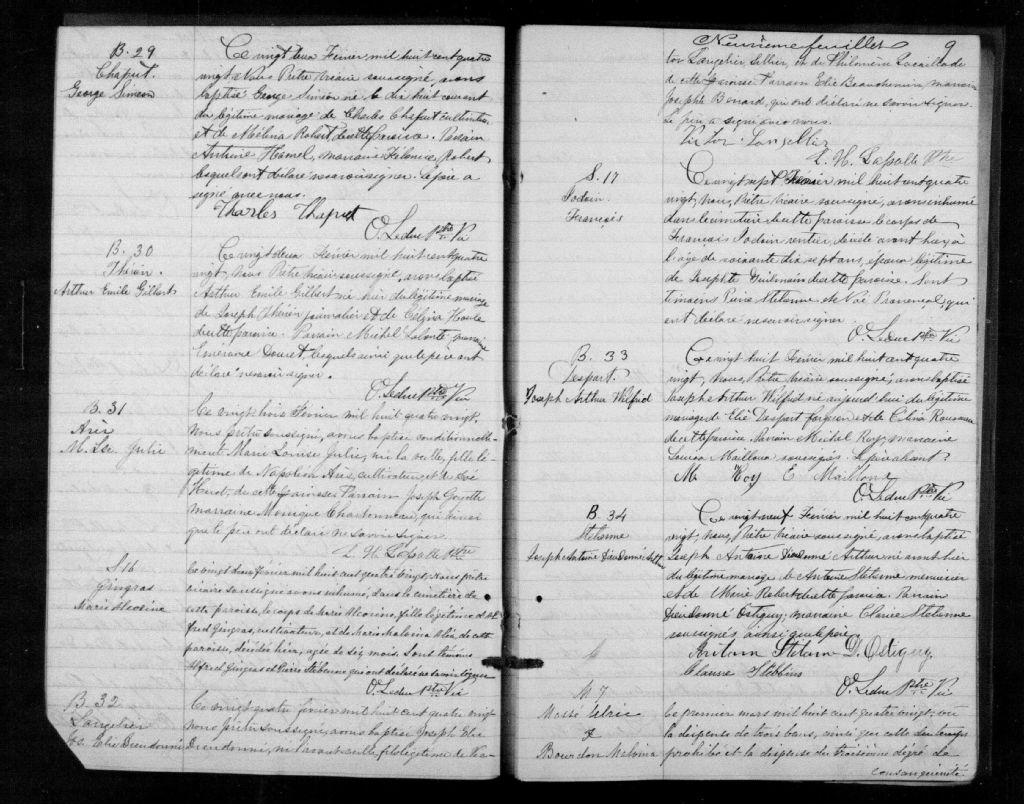 B. 29
Chaput.
George Simeon
Ce vingt deux Février mil huit cent quatre
vingt Nous Prêtre Vicaire soussigné avons
baptisé George Siméon né le dix huit courant
du légitime mariage de Charles Chaput cultivateur
et de Mélina Robert de cette paroisse. Parrain
Antoine Hamel, marraine Robert
lesquels ont déclaré ne savoir signer. Le père a
signé avec nous.
Charles Chaput
O. Leduc Ptre Vic
B. 30
Thérien.
Arthur Emile Gilbert
Ce vingt deux Février mil huit cent quatre
vingt, Nous Prêtre Vicaire soussigné, avons baptisé
Arthur Emile Gilbert né hier du légitime mariage
de Joseph Thérien journalier et de Celina Houle
de cette paroisse. Parrain Michel marraine
Emerance Doucet, lesquels ainsi que le père ont
déclaré ne savoir signer.
O. Leduc Ptre Vic
B. 31
M. Lse Julie
Ce vingt trois Février mil huit quatre vingt,
Nous prêtre soussigné, avons baptisé conditionnelle-
ment Marie Louise Julie, née la veille, fille lé-
gitime de Napoléon cultivateur, et de
de cette paroisse. Parrain Joseph Goyette
marraine Monique Charbonneau, qui ainsi
que le père ont déclaré ne savoir signer.
L. H. Lasalle Ptre
S 16
Gingras
Marie
Ce vingt deux février mil huit cent quatre vingt, Nous prêtre
vicaire soussigné avons inhumé, dans le cimetière de
cette paroisse, le corps de Marie fille légitime d'Al-
fred Gingras, cultivateur, et de Marie Malvina de cette
paroisse, décédée hier, agée de six mois. Sont témoins
Alfred Gingras et Pierre Stebenne qui ont déclaré ne savoir signer
O. Leduc Ptre Vic
B. 32
Langelier
Jos. Elie Dieudonné
Ce vingt quatre février mil huit cent quatre vingt
nous prêtre soussigné, avons baptisé Joseph Elie
Dieudonné, né la veille fils légitime de Vic-
Neuvième feuillet 9
tor Langelier, sellier, et de Philomène Lacaillade
de cette paroisse Parrain Elie Beauchemin, marraine
Josephte Benard, qui ont déclaré ne savoir signer.
Le père a signé avec nous.
Victor Langellier
L. H. Lasalle Ptre
S. 17
Jodoin
François
Ce vingt sept Février mil huit cent quatre
vingt, nous, Prêtre Vicaire soussigné, avons inhumé
dans le cimetière de cette paroisse le corps de
François Jodoin rentier, décédé avant hier, à
l'age de soixante dix sept ans, époux légitime
de Josephte de cette paroisse. Sont
témoins Pierre Stebenne et Noé Provencal, qui
ont déclaré ne savoir signer
O. Leduc Ptre Vic
B. 33
Despart.
Joseph Arthur Wilfrid
Ce vingt huit Février mil huit cent quatre
vingt, Nous Prêtre Vicaire soussigné, avons baptisé
Joseph Arthur Wilfrid né aujourd'hui du légitime
mariage d'Elie Despart forgeron et de Celina Rousseau
de cette paroisse. Parrain Michel Roy, marraine
Mailloux soussignés. Le père absent.
M. Roy E Mailloux
O. Leduc Ptre Vic
B. 34
Stebenne
Joseph Antoine Dieudonné Arthur
Ce vingt neuf Février mil huit cent quatre
vingt, nous, Prêtre Vicaire soussigné, avons baptisé
Joseph Antoine Dieudonné Arthur né avant hier
du légitime mariage de Antoine Stebenne menuisier
et de Marie Robert de cette paroisse. Parrain
Dieudonné Ostiguy, marraine Clarice Stebenne
soussignés ainsi que le père.
Antoine Stebenne D. Ostiguy
Stebbins
O. Leduc Ptre Vic
M 7
Massé Eldric
&
Bourdon Malvina
Le premier mars mil huit cent quatre vingt; vu
la dispense de trois bans, ainsi que celle du temps
prohibé et la dispense du troisième dégré de
consanguinité